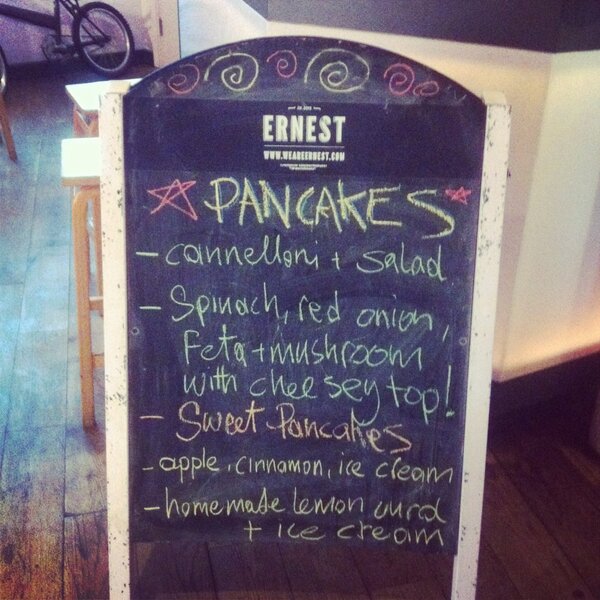 ERNEST
WWW.WEAREERNEST.COM
PANCAKES
- cannelloni + salad
- Spinach, red onion,
Feta + mushroom
with cheesey top!
- Sweet Pancakes
- apple, cinnamon, ice cream
- homemade lemon curd
+ ice cream